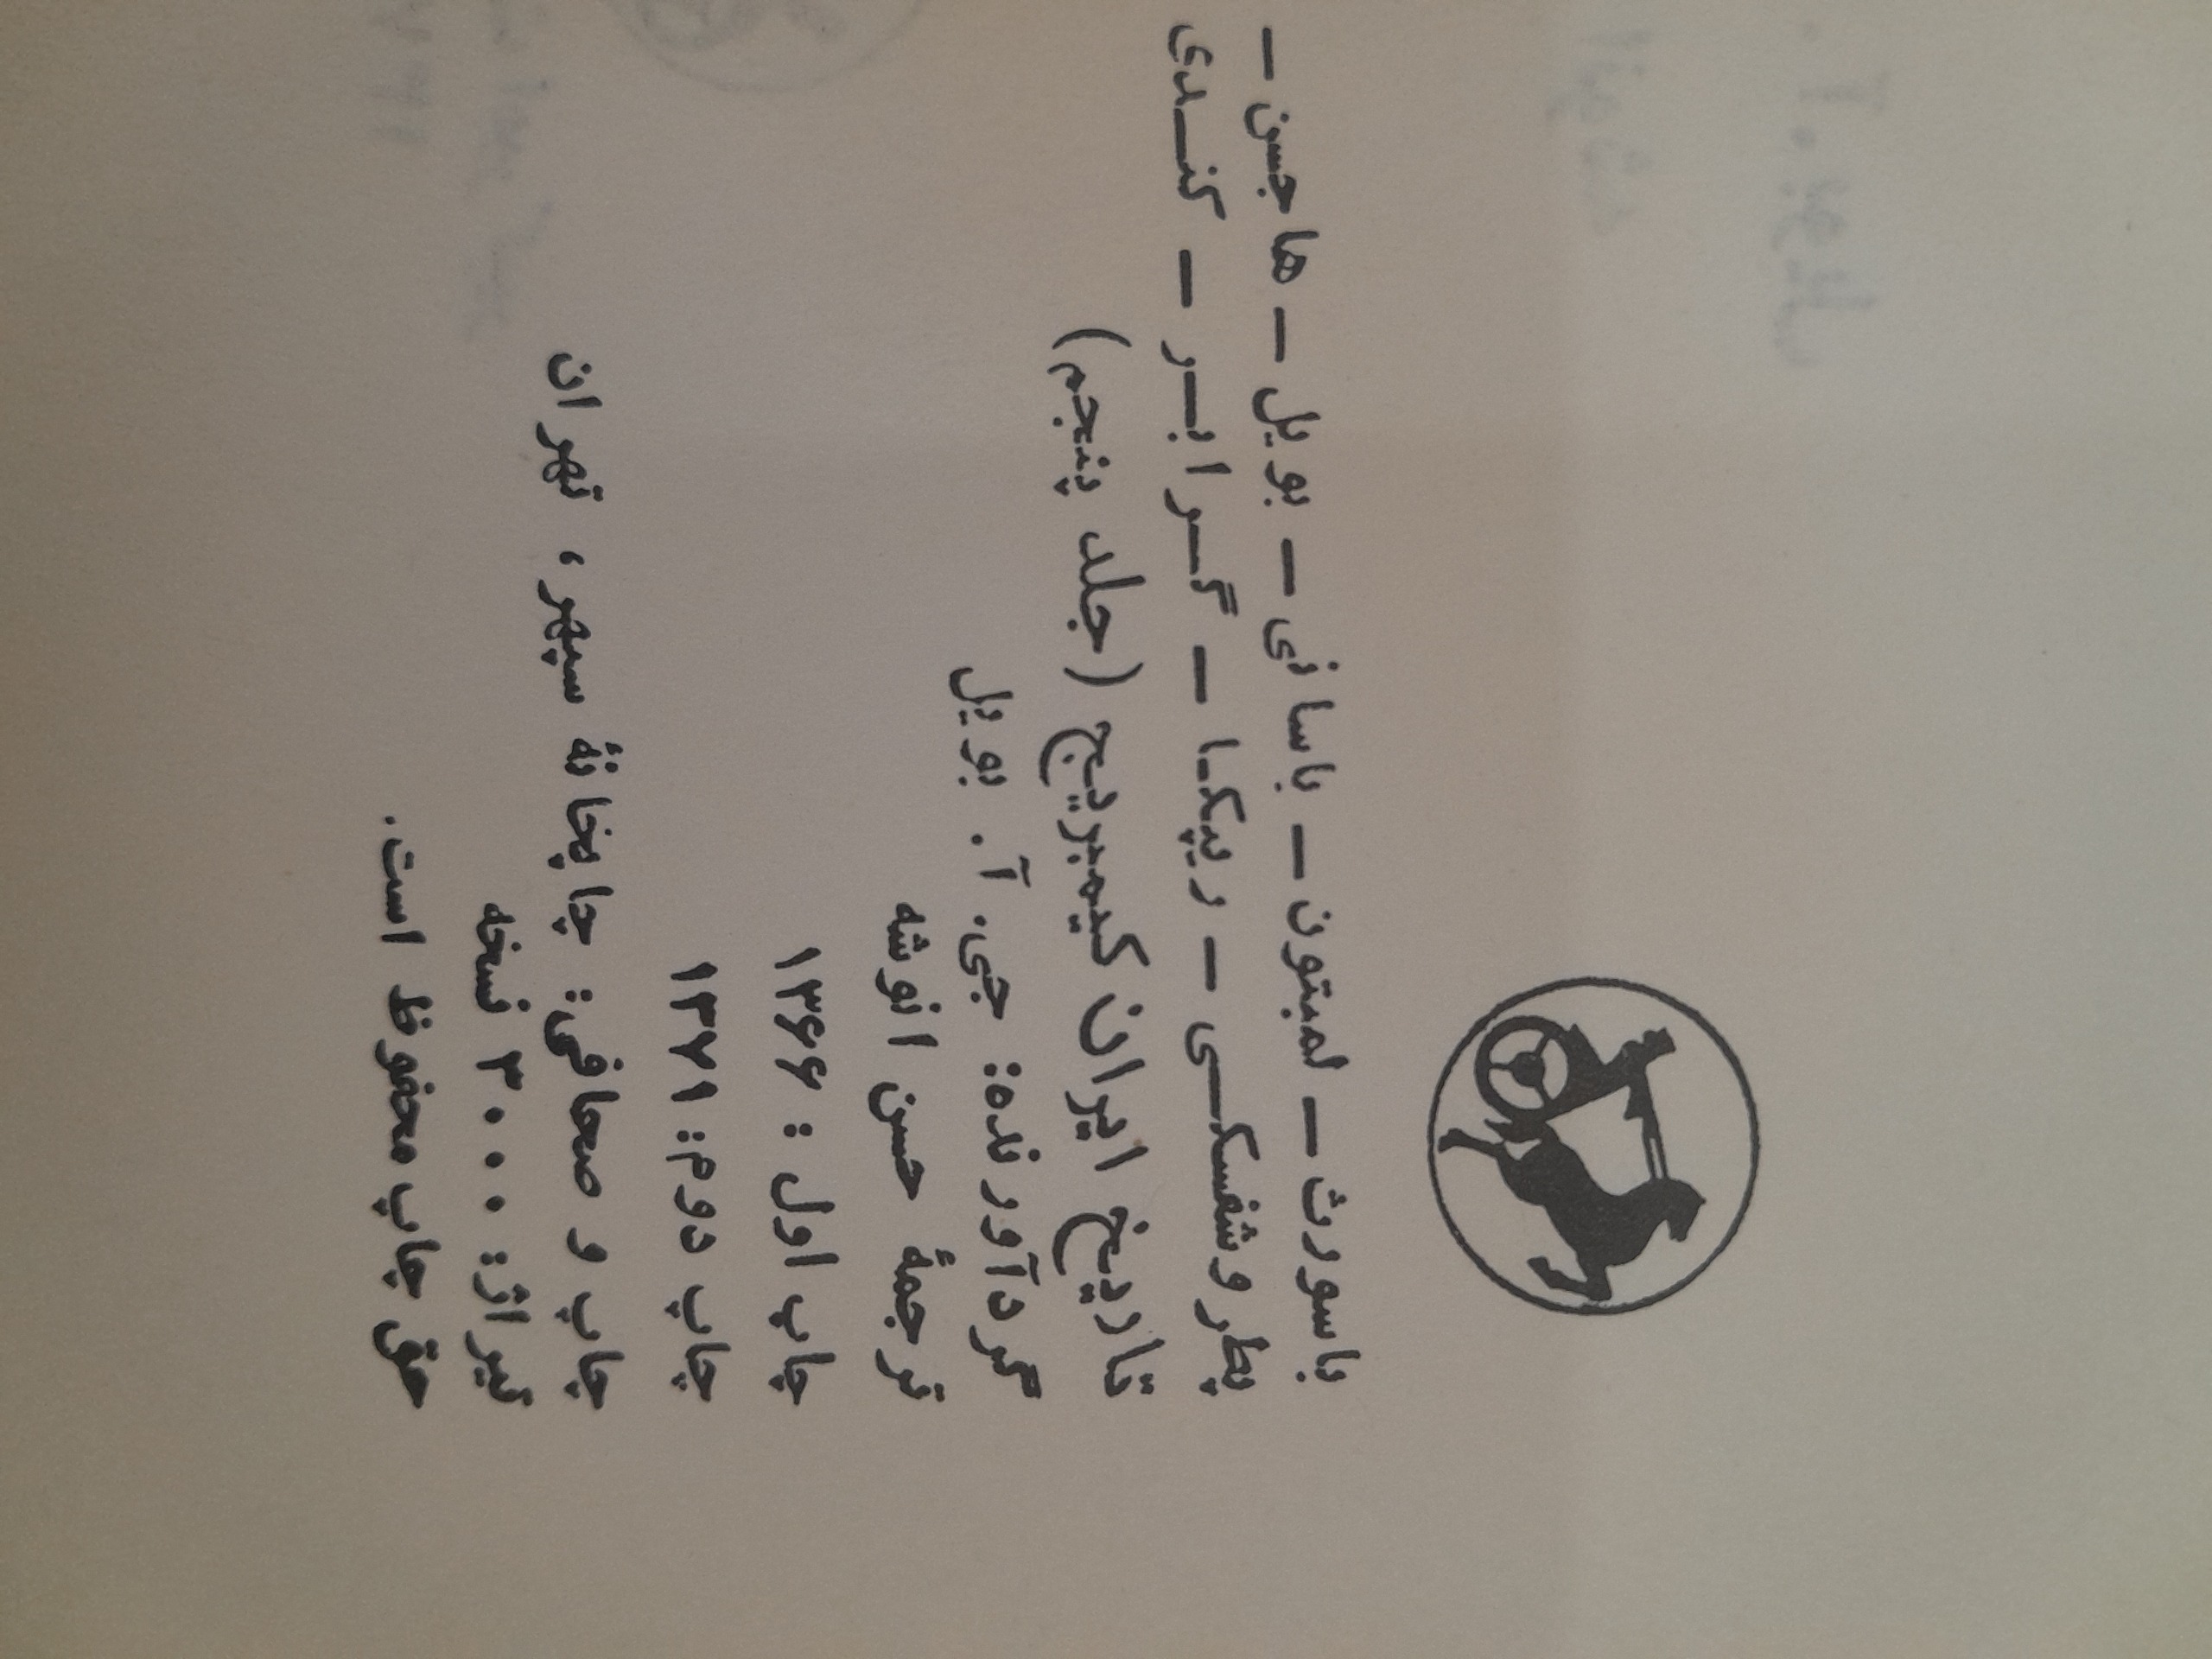 باسورث ــ لمبتون ــ باسانی ــ بویل ــ هاجسن ــ
پطروشفسکـی ــ ریپکـا ــ گـرابـر ــ کنـدی
تاریخ ایران کیمبریج (جلد پنجم)
گردآورنده: جی. آ. بویل
ترجمهٔ حسن انوشه
چاپ اول : ۱۳۶۶
چاپ دوم: ۱۳۷۱
چاپ و صحافی: چاپخانهٔ سپهر، تهران
تیراژ: ۳۰۰۰ نسخه
حق چاپ محفوظ است.